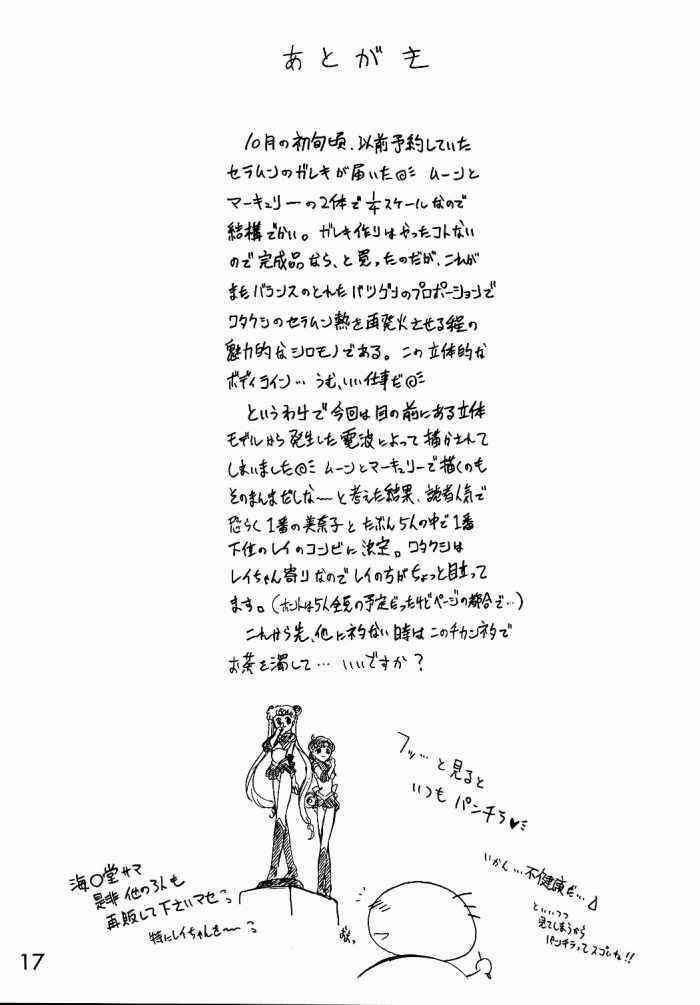 あとがき
10月の初旬頃、以前予約していた
セラムンのガレキが届いた ムーンと
マーキュリーの2体で1/4スケールなので
結構でかい。ガレキ作りはやったコトない
ので完成品なら、と買ったのだが、これが
またバランスのとれたバツグンのプロポーションで
ワタクシのセラムン熱を再発火させる程の
魅力的なシロモノである。この立体的な
ボディライン… うむ、いい仕事だ
というわけで今回は目の前にある立体
モデルから発生した電波によって描かされて
しまいました ムーンとマーキュリーで描くのも
そのまんまだしな〜と考えた結果、読者人気で
恐らく1番の美奈子とたぶん5人の中で1番
下位のレイのコンビに決定。ワタクシは
レイちゃん寄りなのでレイの方がちょっと目立って
ます。(ホントは5人全員の予定だったけどページの都合で…)
これから先、他にネタない時はこのチカンネタで
お茶を濁して… いいですか?
フッ… と見ると
いつも パンチラ♥
海○堂サマ
是非 他の3人も
再販して下さいマセ
特にレイちゃんを〜
いかん…不健康だ…
といいつつ
見てしまうから
パンチラってスゴいね!!
17